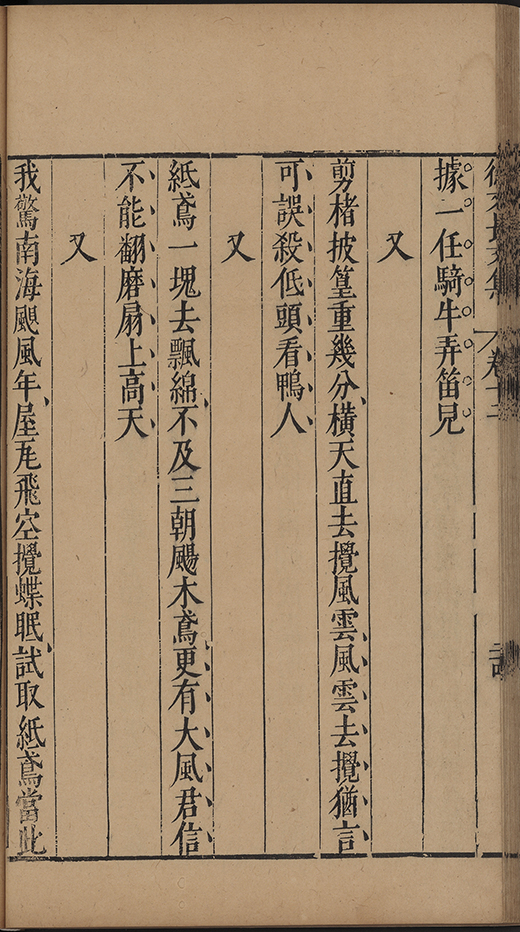 徐文長文集 卷十二
據一任騎牛弄笛兒
又
剪楮披篁重幾分橫天直去攪風雲風雲去攪猶言
可誤殺低頭看鴨人
又
紙鳶一塊去飄綿不及三朝颺木鳶更有大風君信
不能翻磨扇上高天
又
我驚南海颶風年屋瓦飛空攪蝶眠試取紙鳶當此